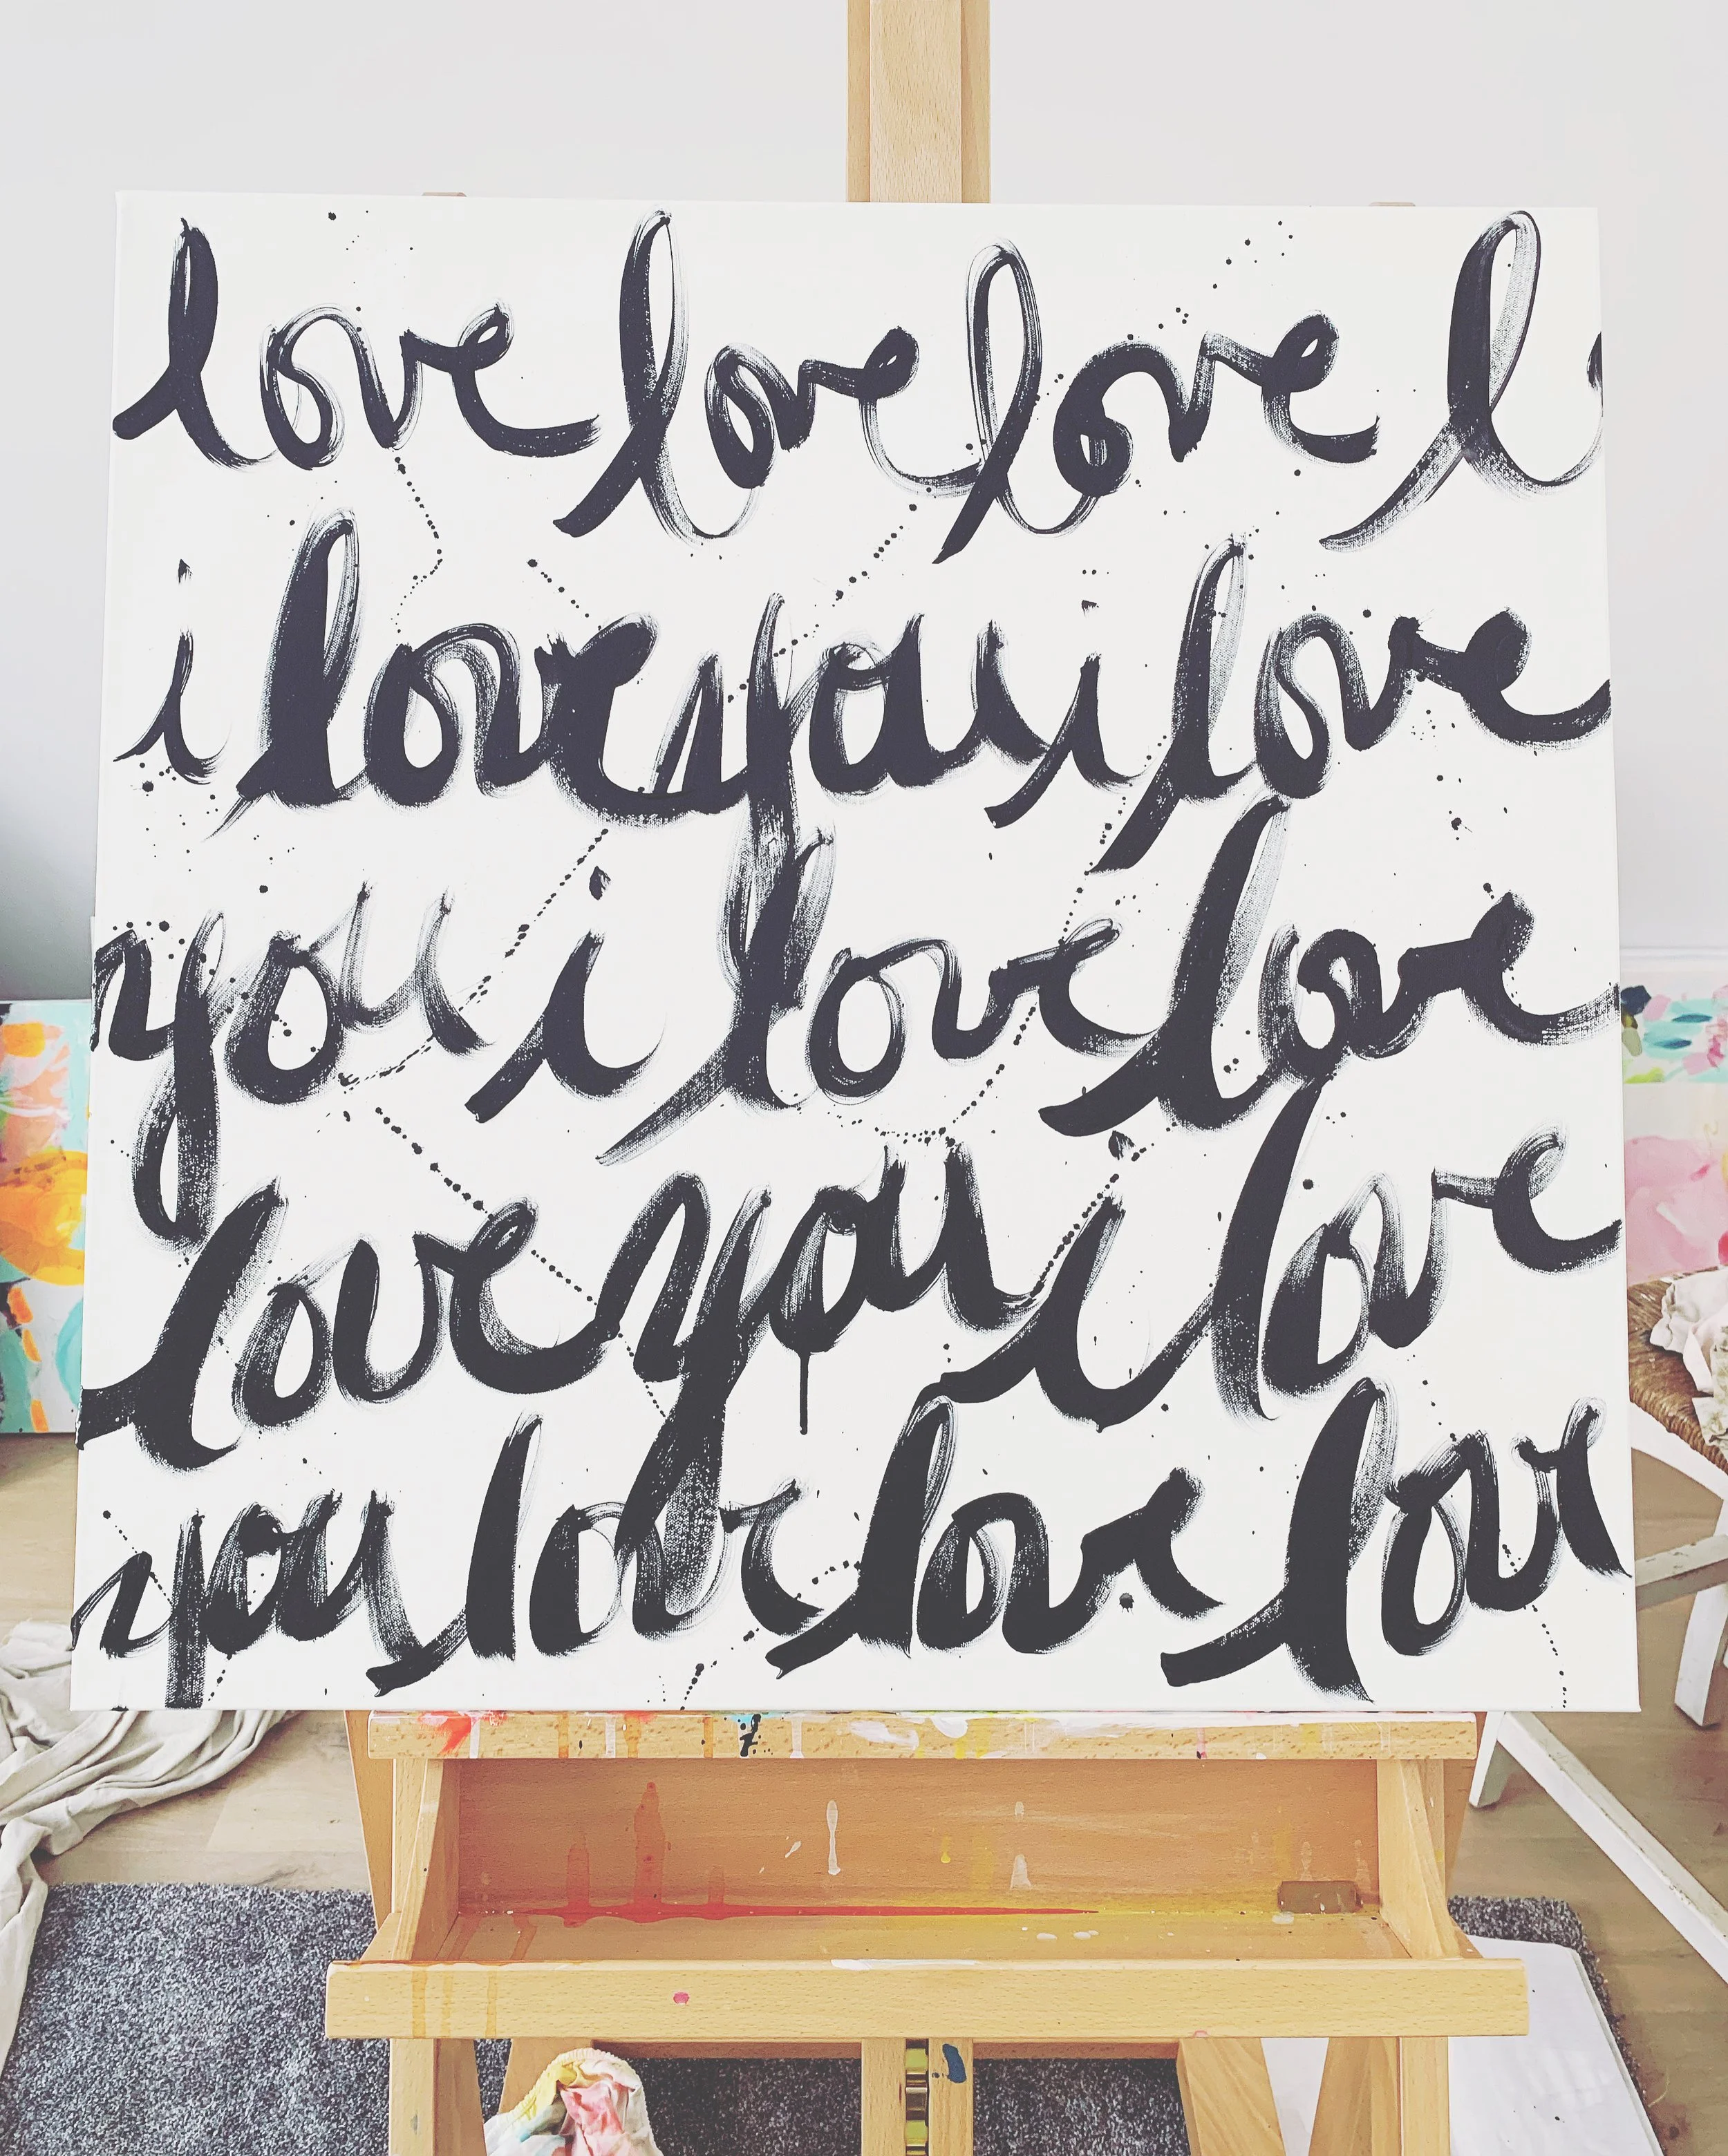 love love love l
i love you i love
you i love love
love you i love
you love love lov